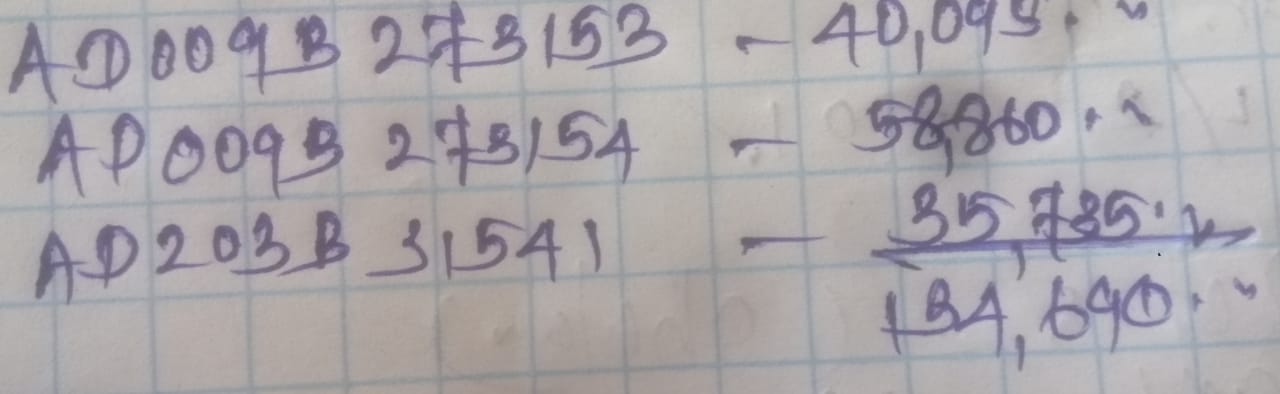 AD009B 273153 - 40,095.
AD009B 273154 - 58,860.
AD203B 31541 - 35,735.
134,690.